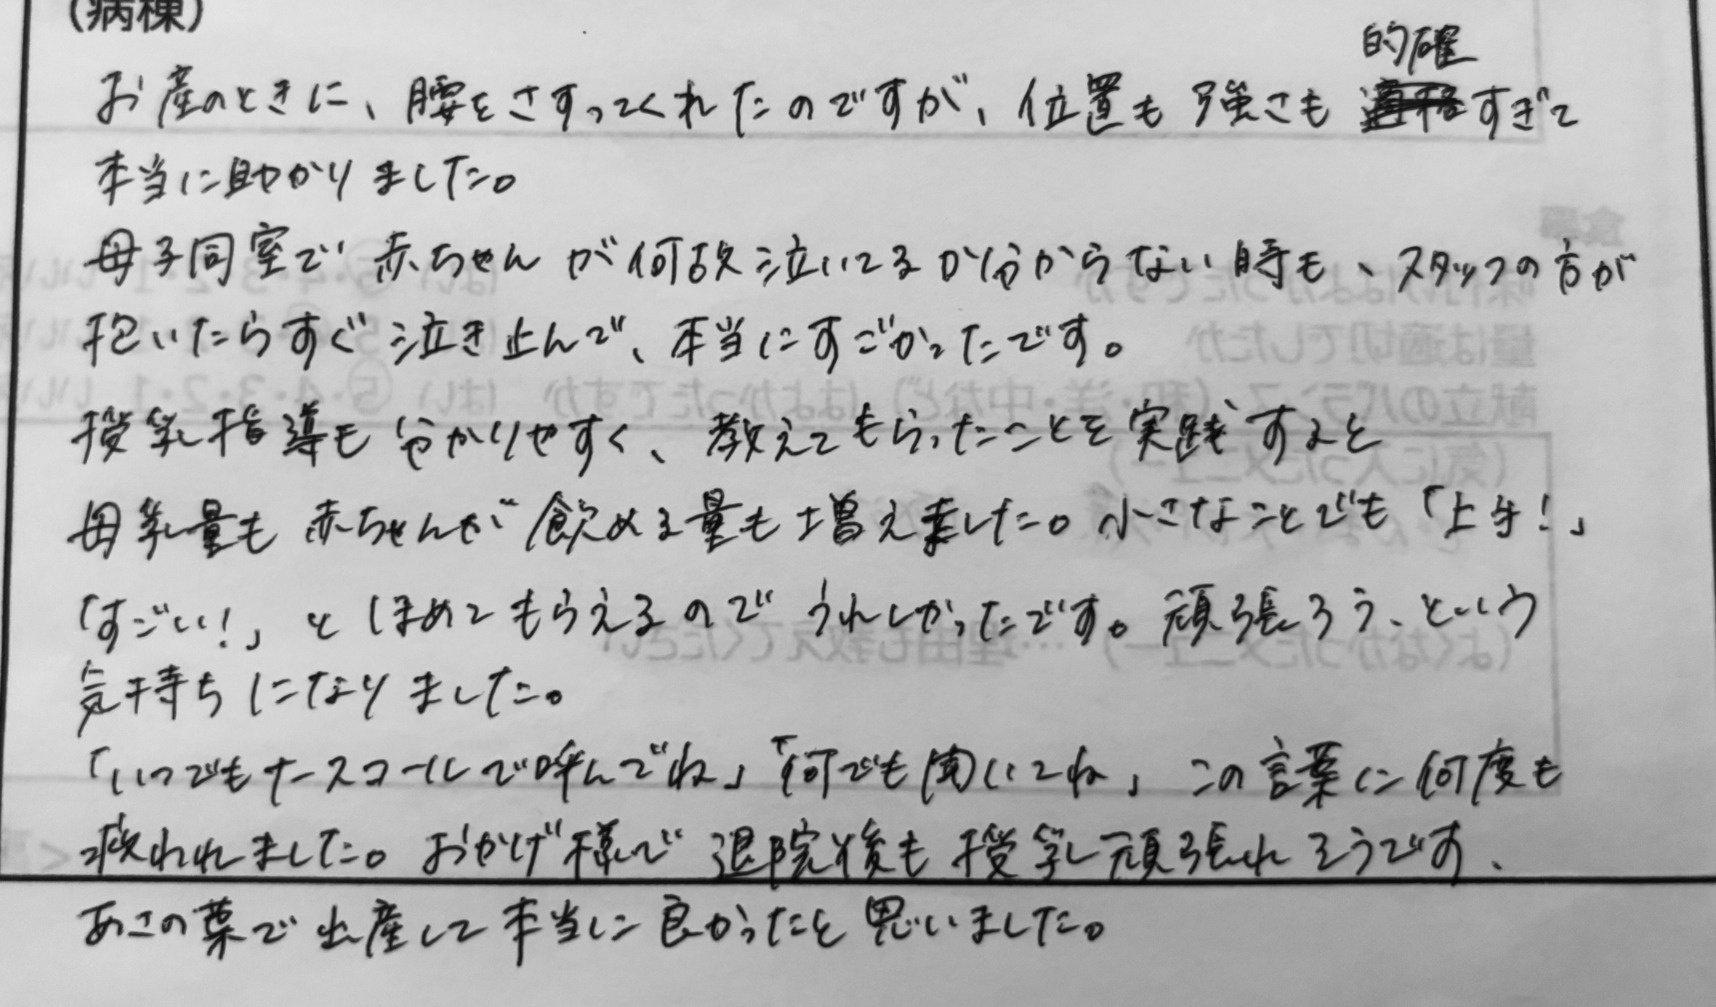 (病棟)
お産のときに、腰をさすってくれたのですが、位置も強さも的確すぎて
本当に助かりました。
母子同室で赤ちゃんが何故泣いてるか分からない時も、スタッフの方が
抱いたらすぐ泣き止んで、本当にすごかったです。
授乳指導も分かりやすく、教えてもらったことを実践すると
母乳量も赤ちゃんが飲める量も増えました。小さなことでも「上手!」
「すごい!」とほめてもらえるのでうれしかったです。頑張ろう、という
気持ちになりました。
「いつでもナースコールで呼んでね」「何でも聞いてね」この言葉に何度も
救われました。おかげ様で退院後も授乳頑張れそうです、
あさの葉で出産して本当に良かったと思いました。
倉橋
味付けはよかったですか はい ⑤・4・3・2・1 いいえ
量は適切でしたか
献立のバランス(和・洋・中など)はよかったですか はい ⑤・4・3・2・1 いいえ
(気に入ったメニュー)
(よくなかったメニュー)…理由も教えてください